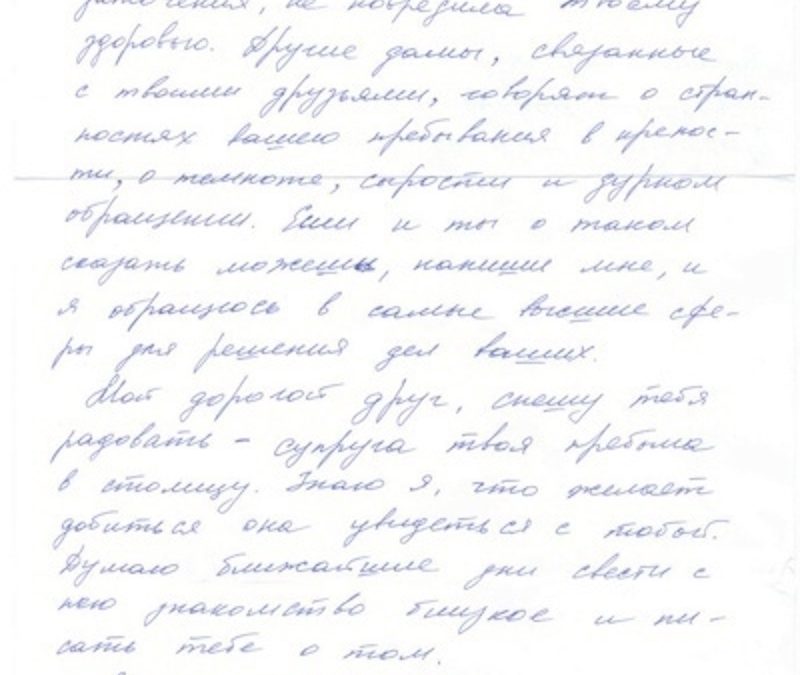 заточения, не повредила твоему
здоровью. Другие дамы, связанные
с твоими друзьями, говорят о стран-
ностях вашего пребывания в крепос-
ти, о темноте, сырости и дурном
обращении. Если и ты о таком
сказать можешь, напиши мне, и
я обращусь в самые высшие сфе-
ры для решения дел ваших.
Мой дорогой друг, спешу тебя
радовать - супруга твоя прибыла
в столицу. Знаю я, что желает
добиться она увидеться с тобой.
Думаю ближайшие дни свести с
нею знакомство близкое и пи-
сать тебе о том.